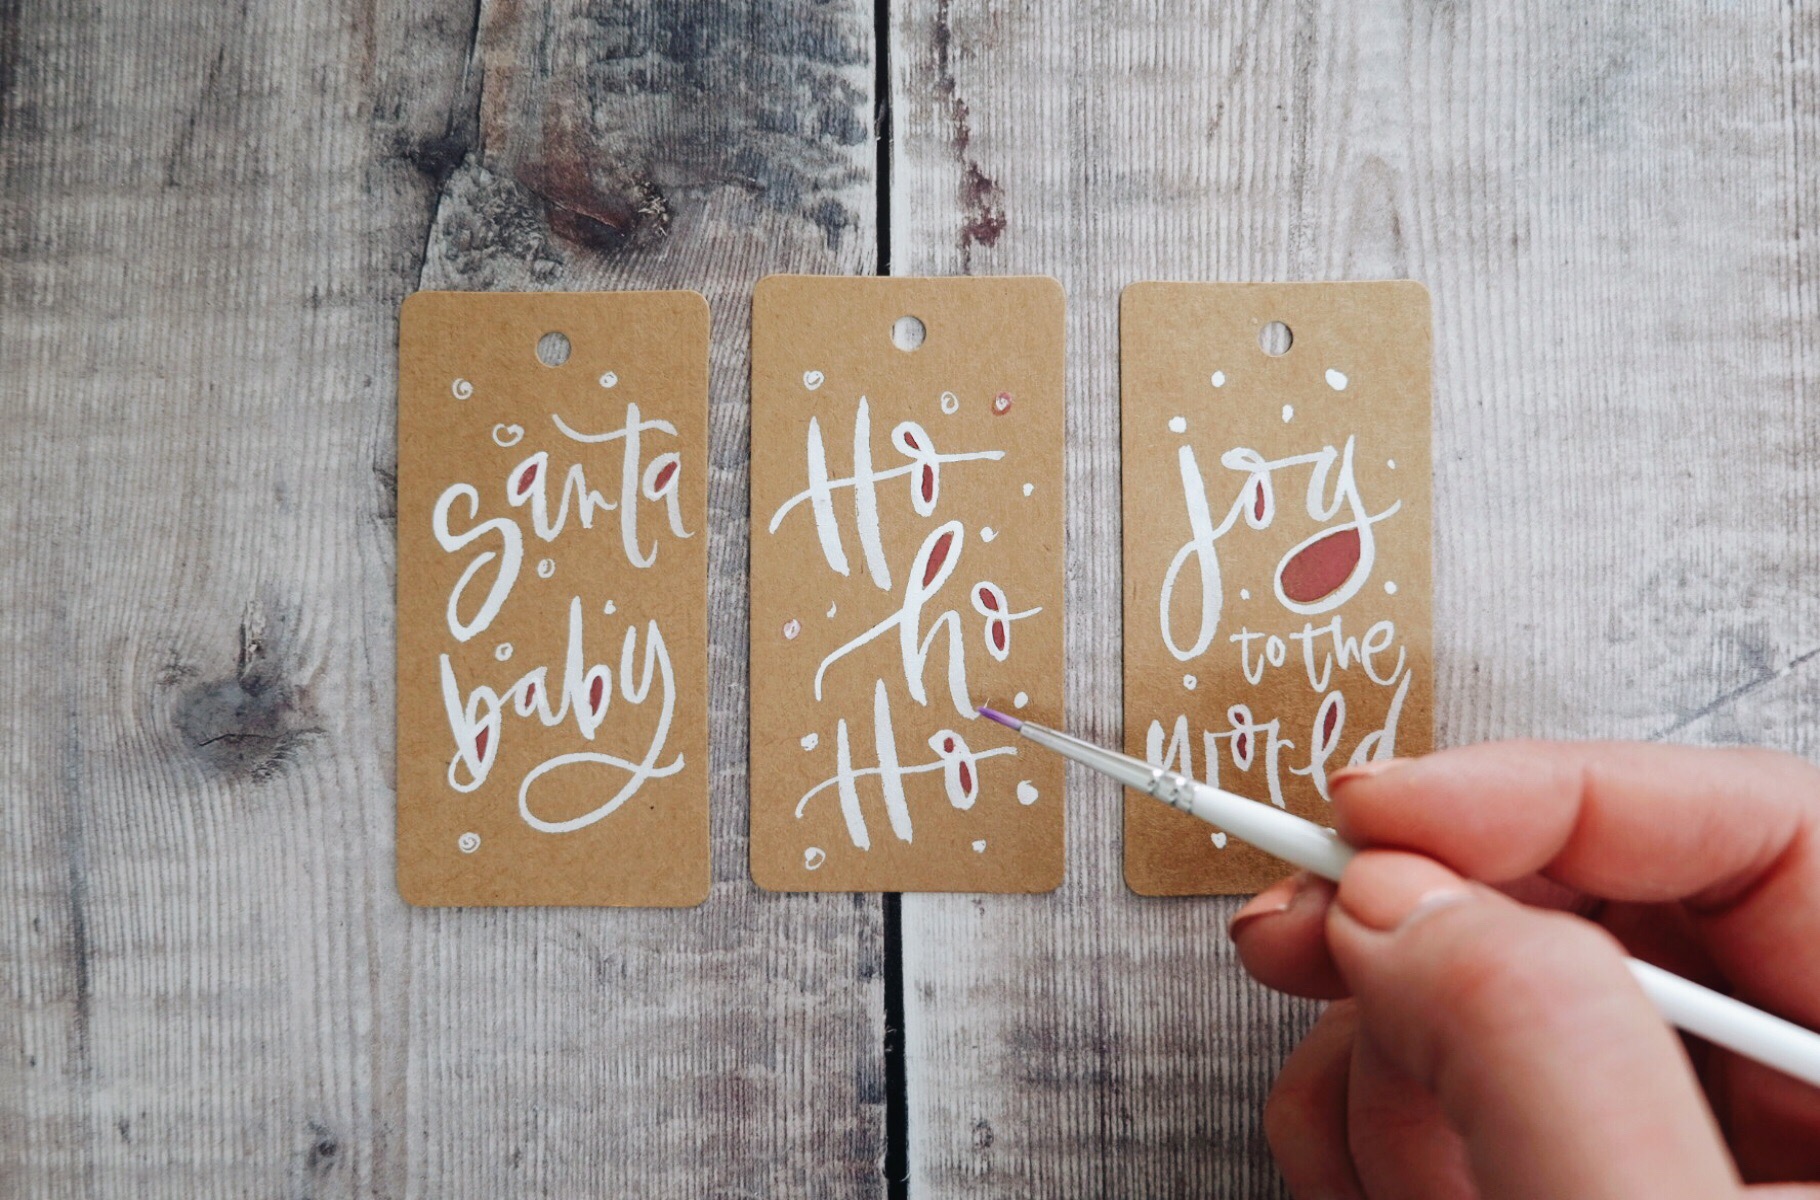 santa
baby
Ho
ho
Ho
joy
to the
world